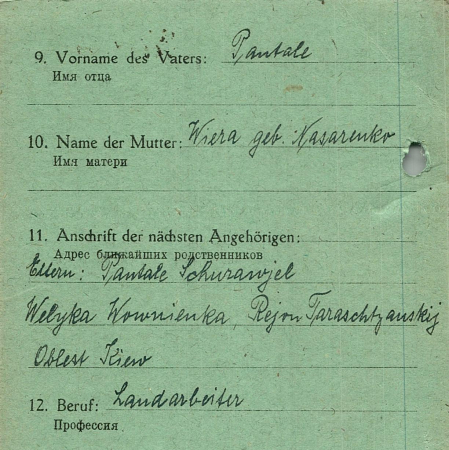 9. Vorname des Vaters: Pantale
Имя отца
10. Name der Mutter: Wiera geb. Nasarenko
Имя матери
11. Anschrift der nächsten Angehörigen:
Адрес ближайших родственников
Eltern: Pantale Schurawjel
Welyka Wownienka, Rejon Taraschtzanskij
Oblest Kiew
12. Beruf: Landarbeiter
Профессия